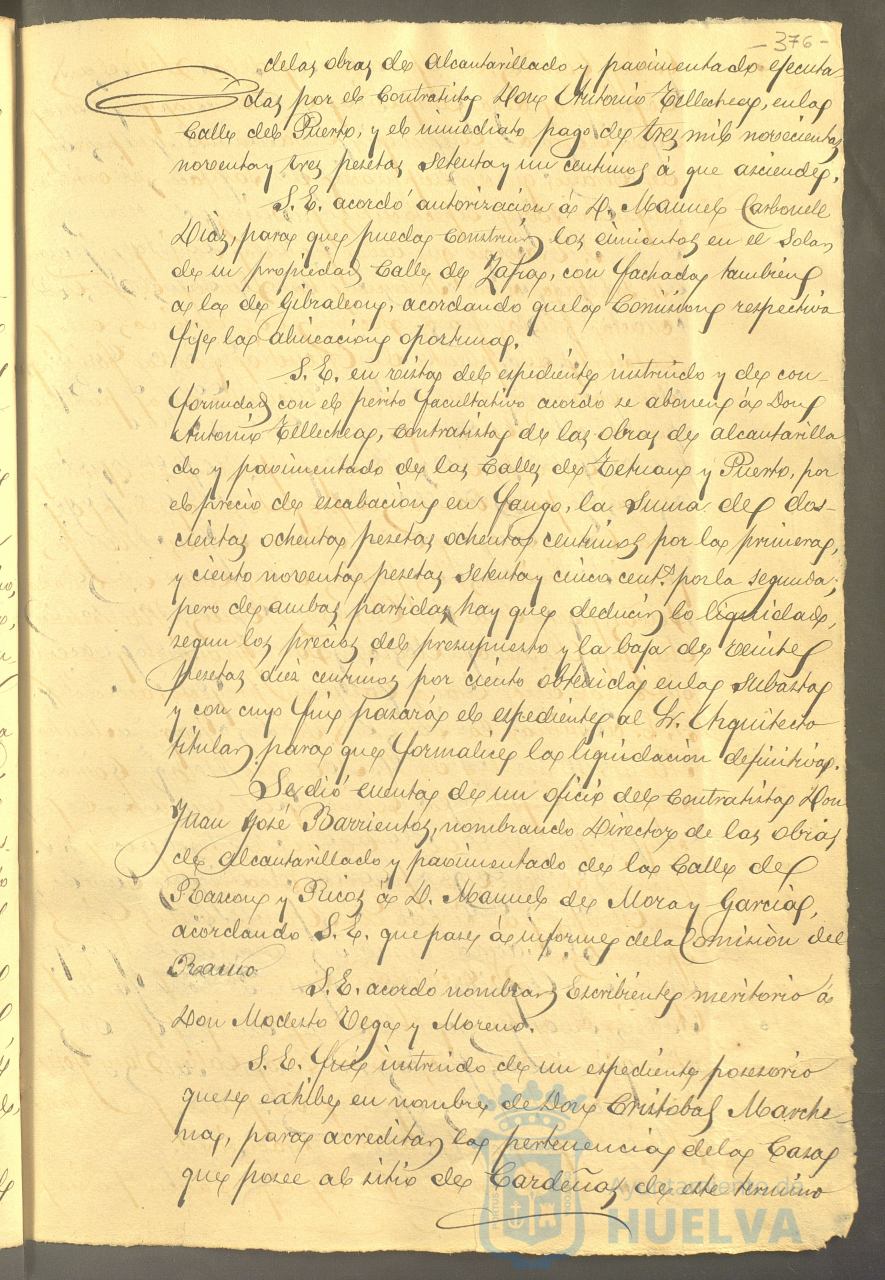 - 376 -
de las obras de alcantarillado y pavimentado ejecuta-
das por el Contratista Don Antonio Tellechea, en la
Calle del Puerto, y el inmediato pago de tres mil novecientas
noventa y tres pesetas setenta y un centimos á que asciende.
S. E. acordó autorizacion á D. Manuel Carbonell
Diaz, para que pueda construir los cimientos en el solar
de su propiedad Calle de Zafra, con fachada tambien
á la de Gibraleon, acordando que la Comision respectiva
fije la alineacion oportuna.
S. E. en vista del espediente instruido y de con-
formidad con el perito facultativo acordó se abonen á Don
Antonio Tellechea, Contratista de las obras de alcantarilla
do y pavimentado de las Calles de Tetuan y Puerto, por
el precio de escabacion en fango, la suma de dos-
cientas ochenta pesetas ochenta centimos por la primera,
y ciento noventa pesetas setenta y cinco cent.s por la segunda;
pero de ambas partidas hay que deducir lo liquidado,
segun los precios del presupuesto y la baja de veinte
pesetas diez centimos por ciento obtenida en la subasta
y con cuyo fin pasará el espediente al Sr. Arquitecto
titular para que formalice la liquidacion definitiva.
Se dió cuenta de un oficio del Contratista Don
Juan José Barrientos, nombrando Director de las obras
de alcantarillado y pavimentado de la Calle del
Rascon y Ricos á D. Manuel de Mora y Garcia,
acordando S. E. que pase á informe de la Comisiòn del
Ramo
S. E. acordó nombrar Escribiente meritorio á
Don Modesto Vega y Moreno.
S. E. fué instruido de un espediente posesorio
que se exhibe en nombre de Don Cristobal Marche-
na, para acreditar la pertenencia de la Casa
que posee al sitio de Cardeñas de este termino
Ayuntamiento de
HUELVA